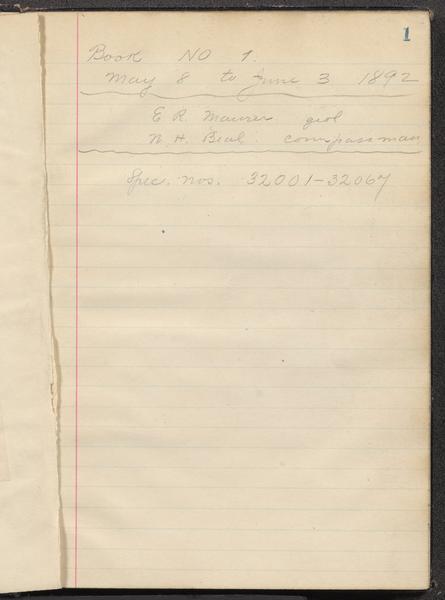 1
Book NO 1.
May 8 to June 3 1892
E R. Maurer geol
N. H. Beal. compassman
Spec. nos. 32001-32067